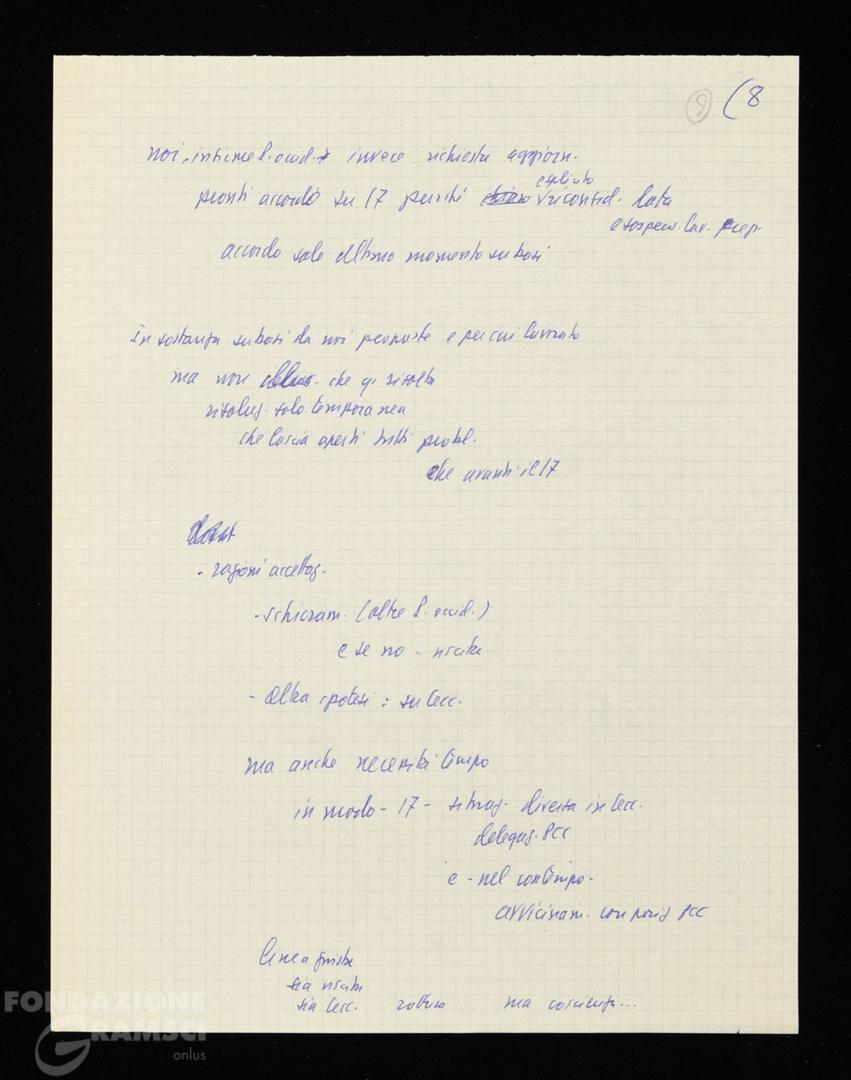 (9) (8
noi, insieme P. occid. invece richiesta aggiorn.
pronti accordo su 17 purché esplicito riconsid. data
e sospens. lav. prep.
accordo solo ultimo momento su basi
In sostanza su basi da noi proposte e per cui lavorato
ma non che q. risolta
risoluz. solo temporanea
che lascia aperti tutti probl.
che avanti il 17
- ragioni accettaz.
- schieram. (oltre P. occid.)
e se no - uscita
- altra ipotesi: su Cecc.
ma anche necessità tempo
in modo - 17 - situaz. diversa in Cecc.
delegaz. PCC
e - nel contempo -
avvicinam. con posiz. PCC
linea giusta
sia uscita
sia Cecc. rottura ma coscienza...
FONDAZIONE
GRAMSCI
onlus